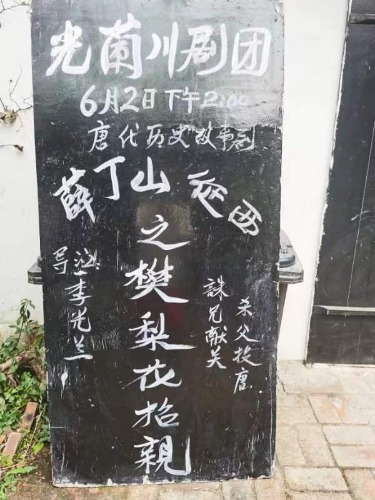 光蘭川剧团
6月2日下午2:00
唐代历史故事剧
薛丁山征西
之樊梨花招親
导演:李光兰
杀父投唐
誅兄献关